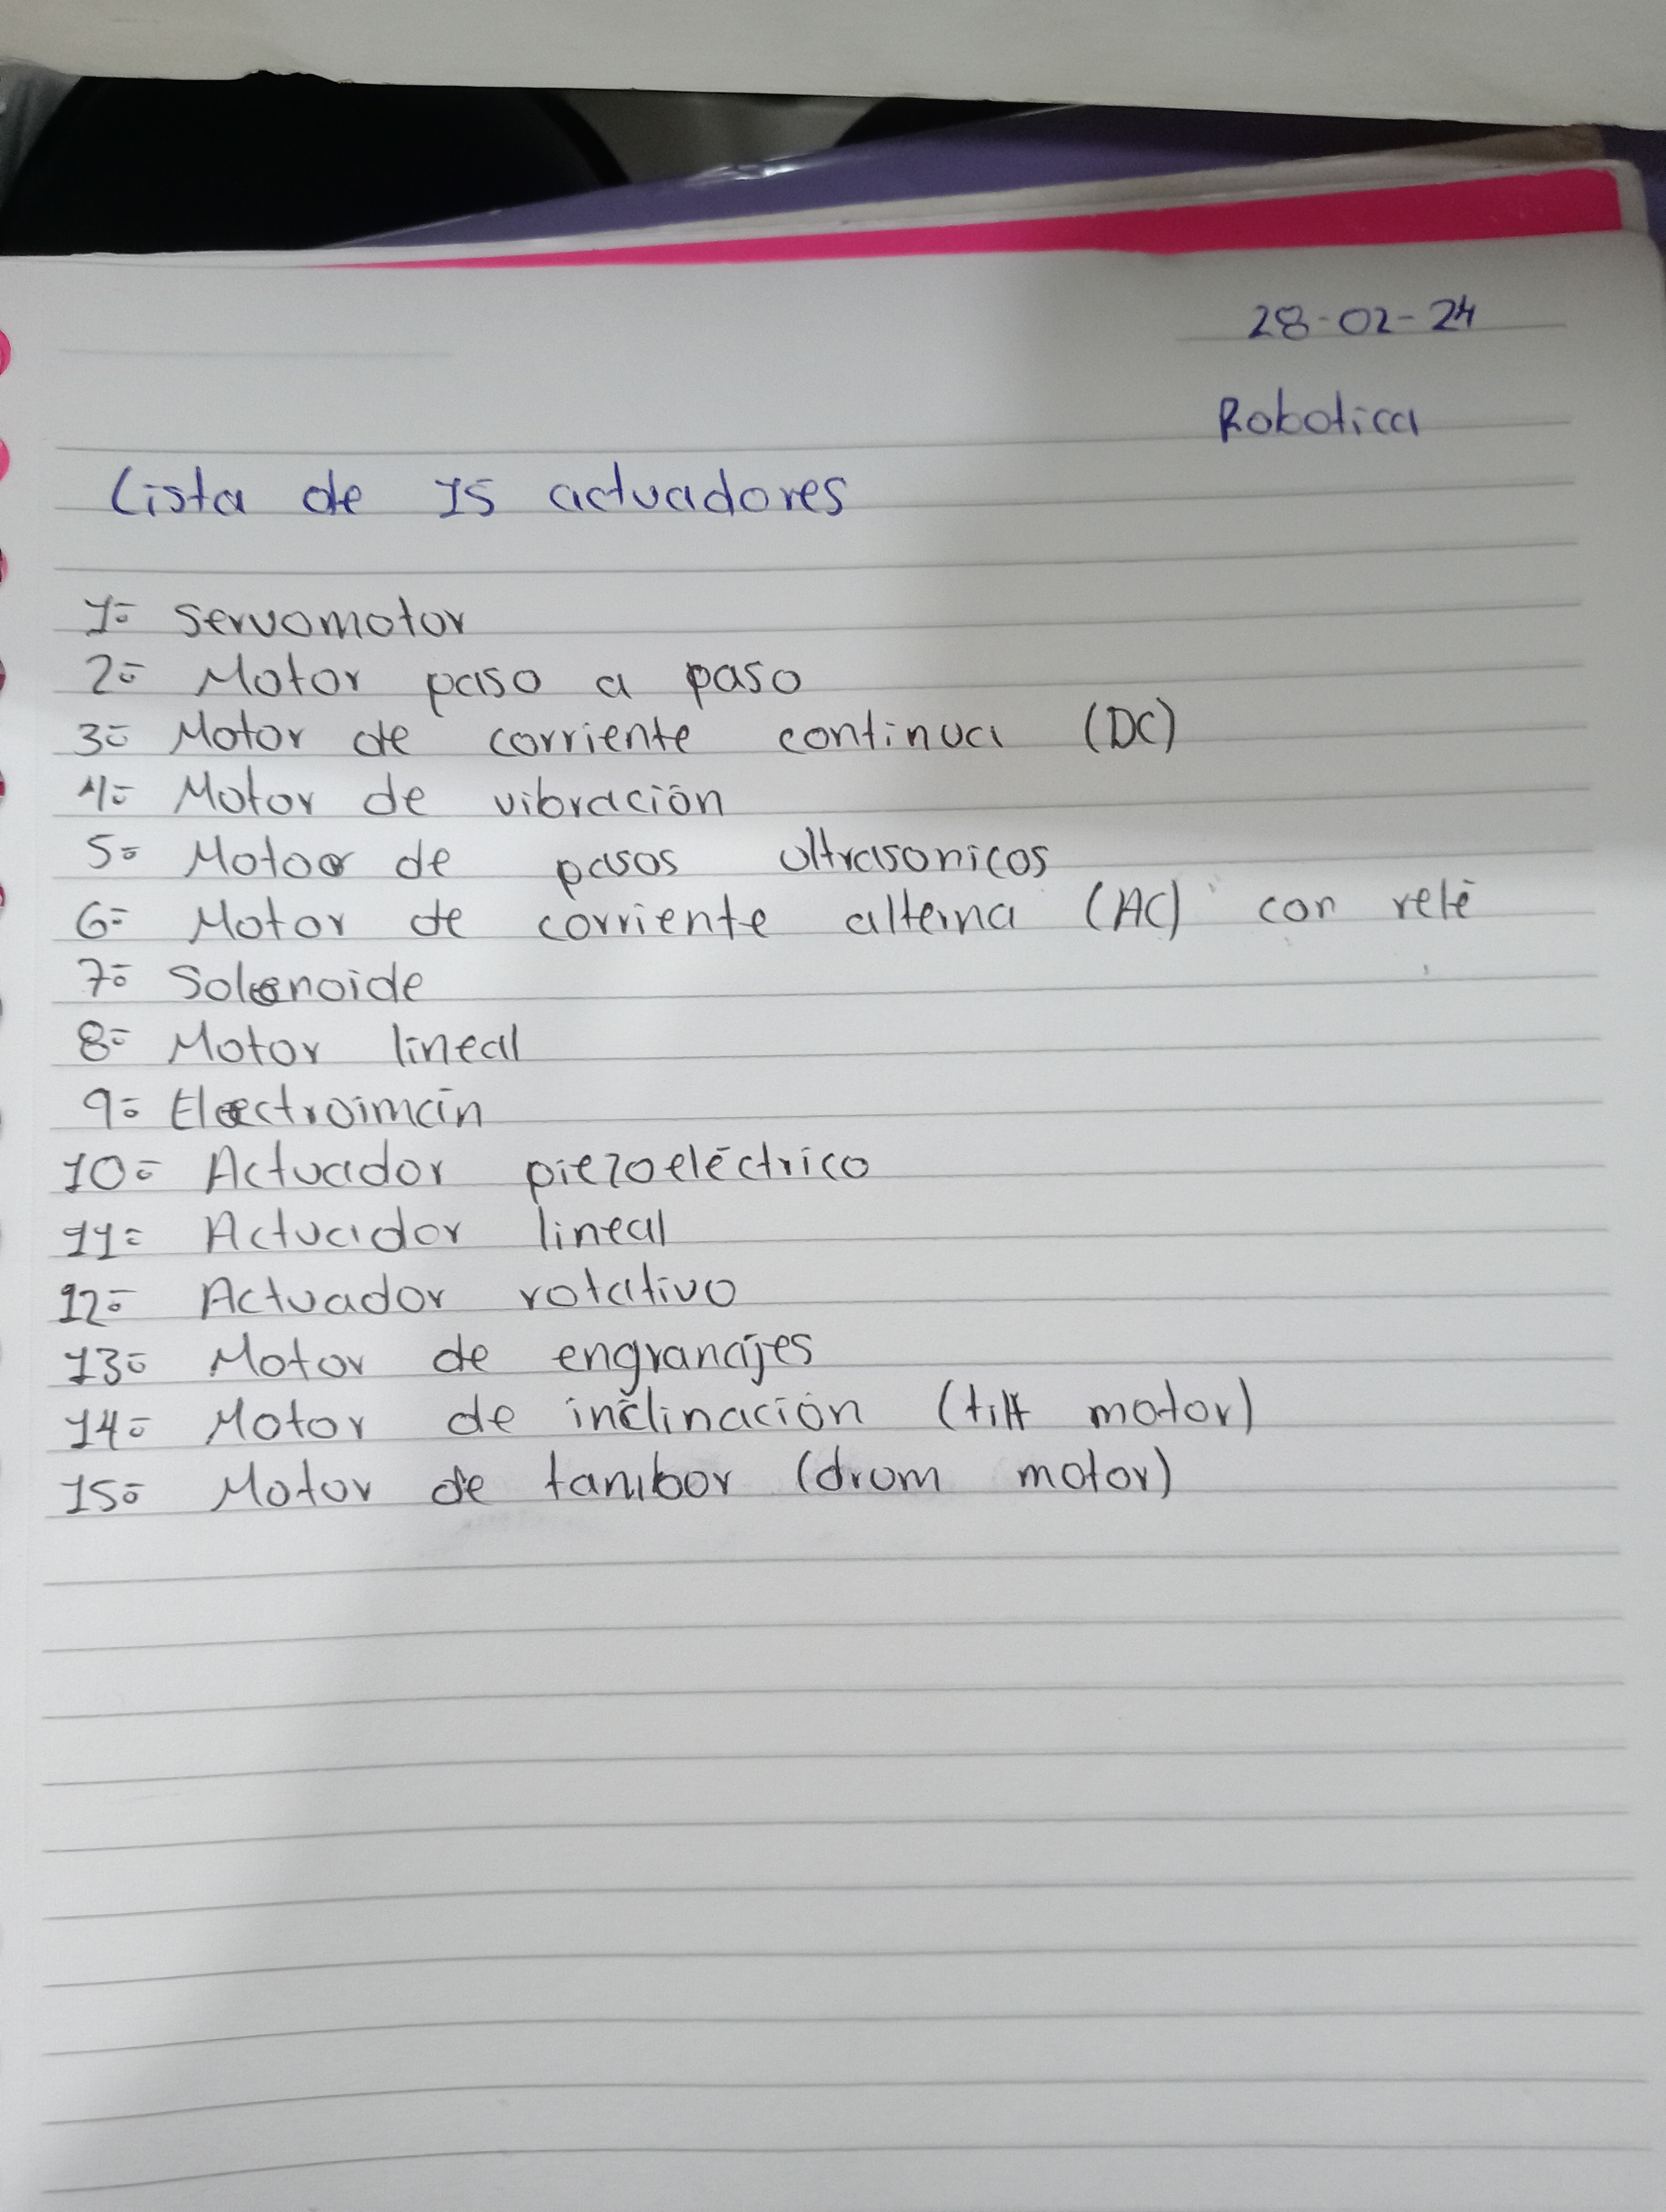 28-02-24
Robotica
Lista de 15 actuadores
1= Servomotor
2= Motor paso a paso
3= Motor de corriente continua (DC)
4= Motor de vibración
5= Motor de pasos ultrasonicos
6= Motor de corriente alterna (AC) con relé
7= Solenoide
8= Motor lineal
9= Electroimán
10= Actuador piezoeléctrico
11= Actuador lineal
12= Actuador rotativo
13= Motor de engranajes
14= Motor de inclinación (tilt motor)
15= Motor de tambor (drum motor)